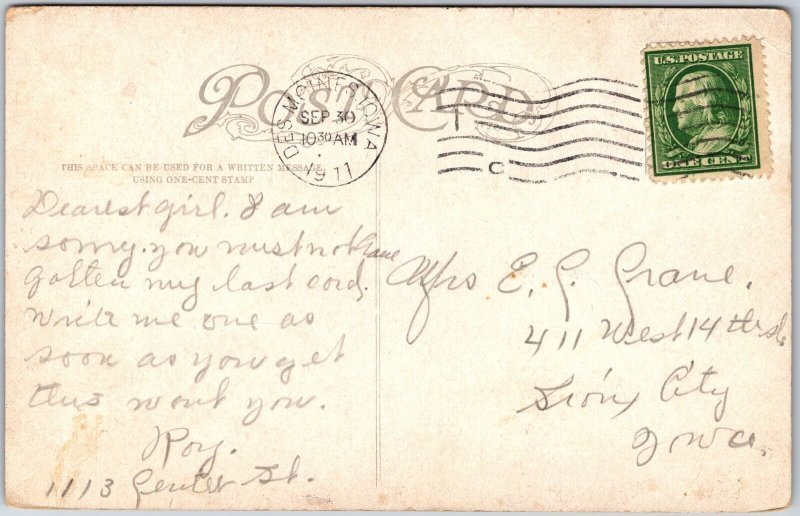 POST CARD
DES MOINES, IOWA
SEP 30
10 30 AM
1911
1
C
U.S. POSTAGE
ONE CENT
THIS SPACE CAN BE USED FOR A WRITTEN MESSAGE
USING ONE-CENT STAMP
Dearest girl. I am
sorry. you must not have
gotten my last card,
Write me one as
soon as you get
this wont you.
Roy.
1113 Center St.
Mrs E. G. Crane.
411 West 14th st
Sioux City
Iowa.